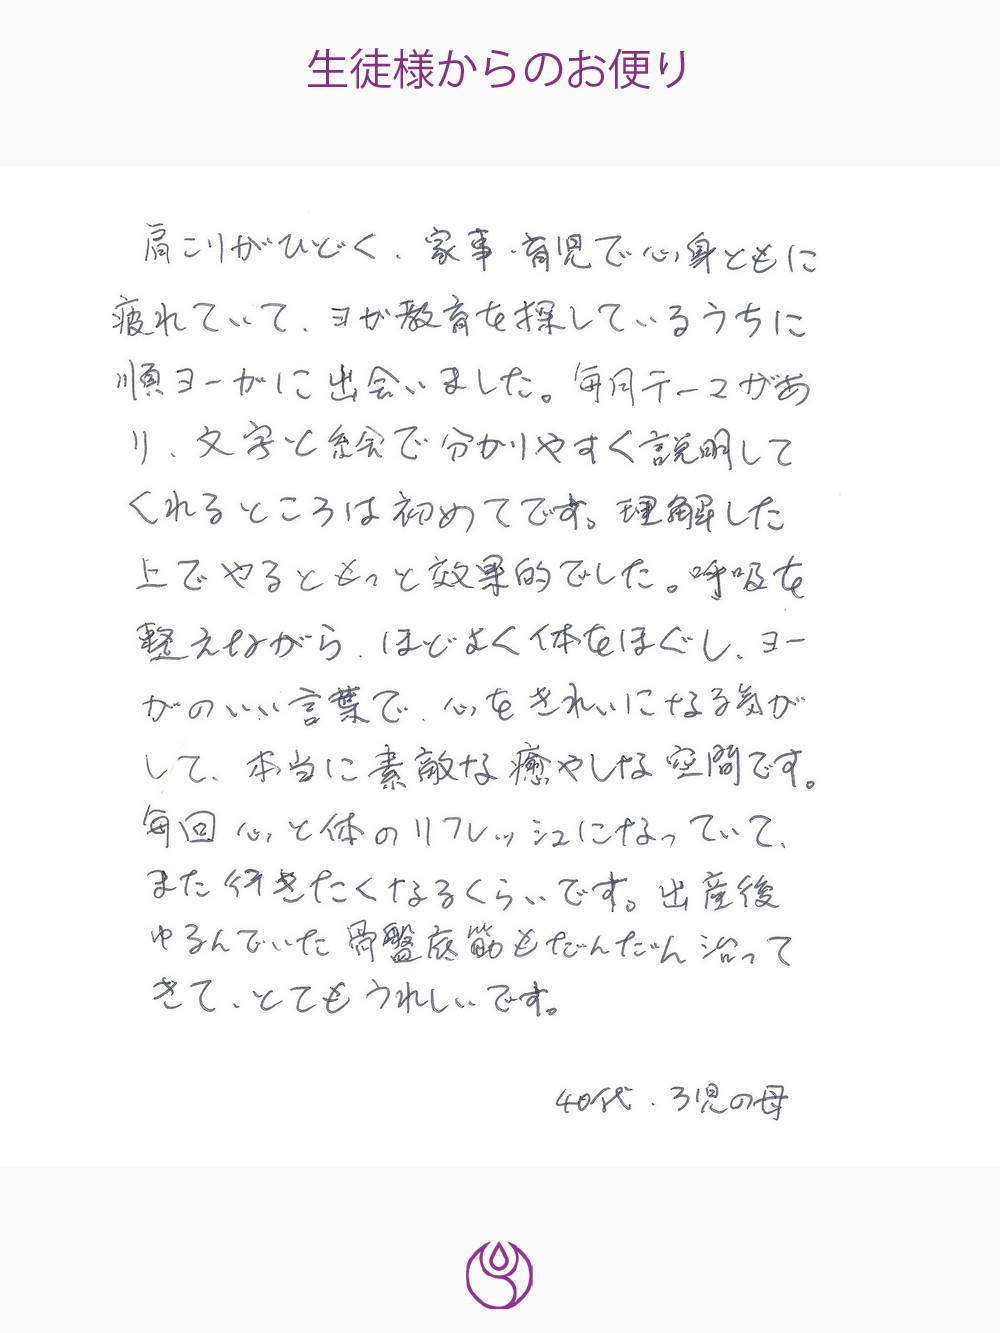 生徒様からのお便り
肩こりがひどく、家事・育児で心身ともに
疲れていて、ヨガ教育を探しているうちに
順ヨーガに出会いました。毎月テーマがあ
り、文字と絵で分かりやすく説明して
くれるところは初めてです。理解した
上でやるともっと効果的でした。呼吸を
整えながら、ほどよく体をほぐし、ヨー
ガのいい言葉で、心をきれいになる気が
して、本当に素敵な癒やしな空間です。
毎回 心と体のリフレッシュになっていて、
また行きたくなるくらいです。出産後
ゆるんでいた骨盤底筋もだんだん治って
きて、とてもうれしいです。
40代・3児の母